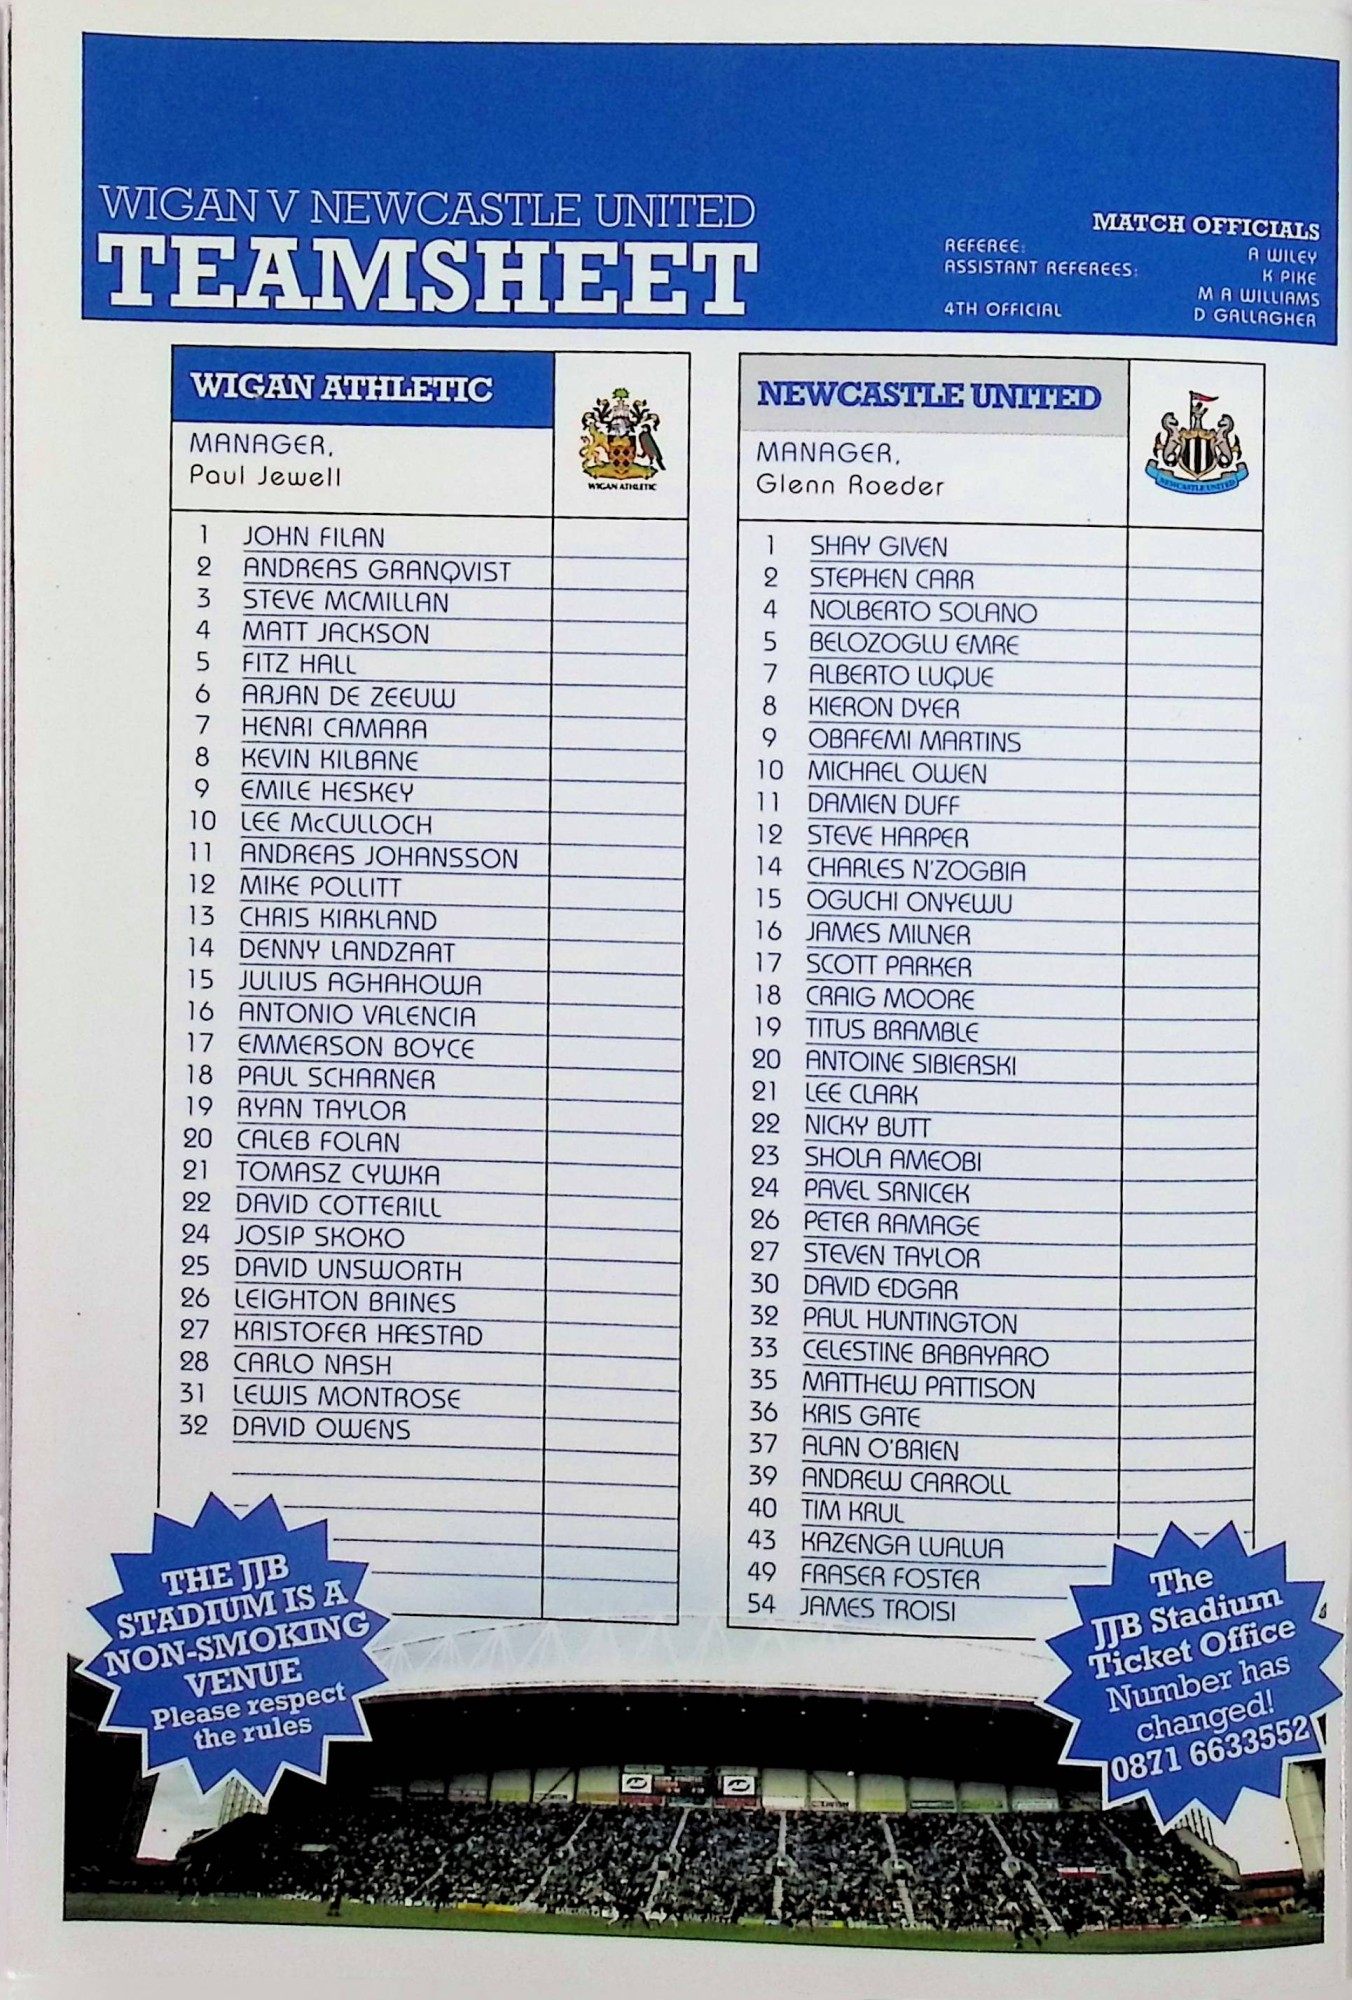 WIGAN V NEWCASTLE UNITED
TEAMSHEET
MATCH OFFICIALS
REFEREE: A WILEY
ASSISTANT REFEREES: K PIKE
M A WILLIAMS
4TH OFFICIAL D GALLAGHER
WIGAN ATHLETIC
MANAGER,
Paul Jewell
WIGAN ATHLETIC
1 JOHN FILAN
2 ANDREAS GRANQVIST
3 STEVE MCMILLAN
4 MATT JACKSON
5 FITZ HALL
6 ARJAN DE ZEEUW
7 HENRI CAMARA
8 KEVIN KILBANE
9 EMILE HESKEY
10 LEE McCULLOCH
11 ANDREAS JOHANSSON
12 MIKE POLLITT
13 CHRIS KIRKLAND
14 DENNY LANDZAAT
15 JULIUS AGHAHOWA
16 ANTONIO VALENCIA
17 EMMERSON BOYCE
18 PAUL SCHARNER
19 RYAN TAYLOR
20 CALEB FOLAN
21 TOMASZ CYWKA
22 DAVID COTTERILL
24 JOSIP SKOKO
25 DAVID UNSWORTH
26 LEIGHTON BAINES
27 KRISTOFER HÆSTAD
28 CARLO NASH
31 LEWIS MONTROSE
32 DAVID OWENS
NEWCASTLE UNITED
MANAGER,
Glenn Roeder
NEWCASTLE UNITED
1 SHAY GIVEN
2 STEPHEN CARR
4 NOLBERTO SOLANO
5 BELOZOGLU EMRE
7 ALBERTO LUQUE
8 KIERON DYER
9 OBAFEMI MARTINS
10 MICHAEL OWEN
11 DAMIEN DUFF
12 STEVE HARPER
14 CHARLES N'ZOGBIA
15 OGUCHI ONYEWU
16 JAMES MILNER
17 SCOTT PARKER
18 CRAIG MOORE
19 TITUS BRAMBLE
20 ANTOINE SIBIERSKI
21 LEE CLARK
22 NICKY BUTT
23 SHOLA AMEOBI
24 PAVEL SRNICEK
26 PETER RAMAGE
27 STEVEN TAYLOR
30 DAVID EDGAR
32 PAUL HUNTINGTON
33 CELESTINE BABAYARO
35 MATTHEW PATTISON
36 KRIS GATE
37 ALAN O'BRIEN
39 ANDREW CARROLL
40 TIM KRUL
43 KAZENGA LUALUA
49 FRASER FOSTER
54 JAMES TROISI
THE JJB
STADIUM IS A
NON-SMOKING
VENUE
Please respect
the rules
The
JJB Stadium
Ticket Office
Number has
changed!
0871 6633552